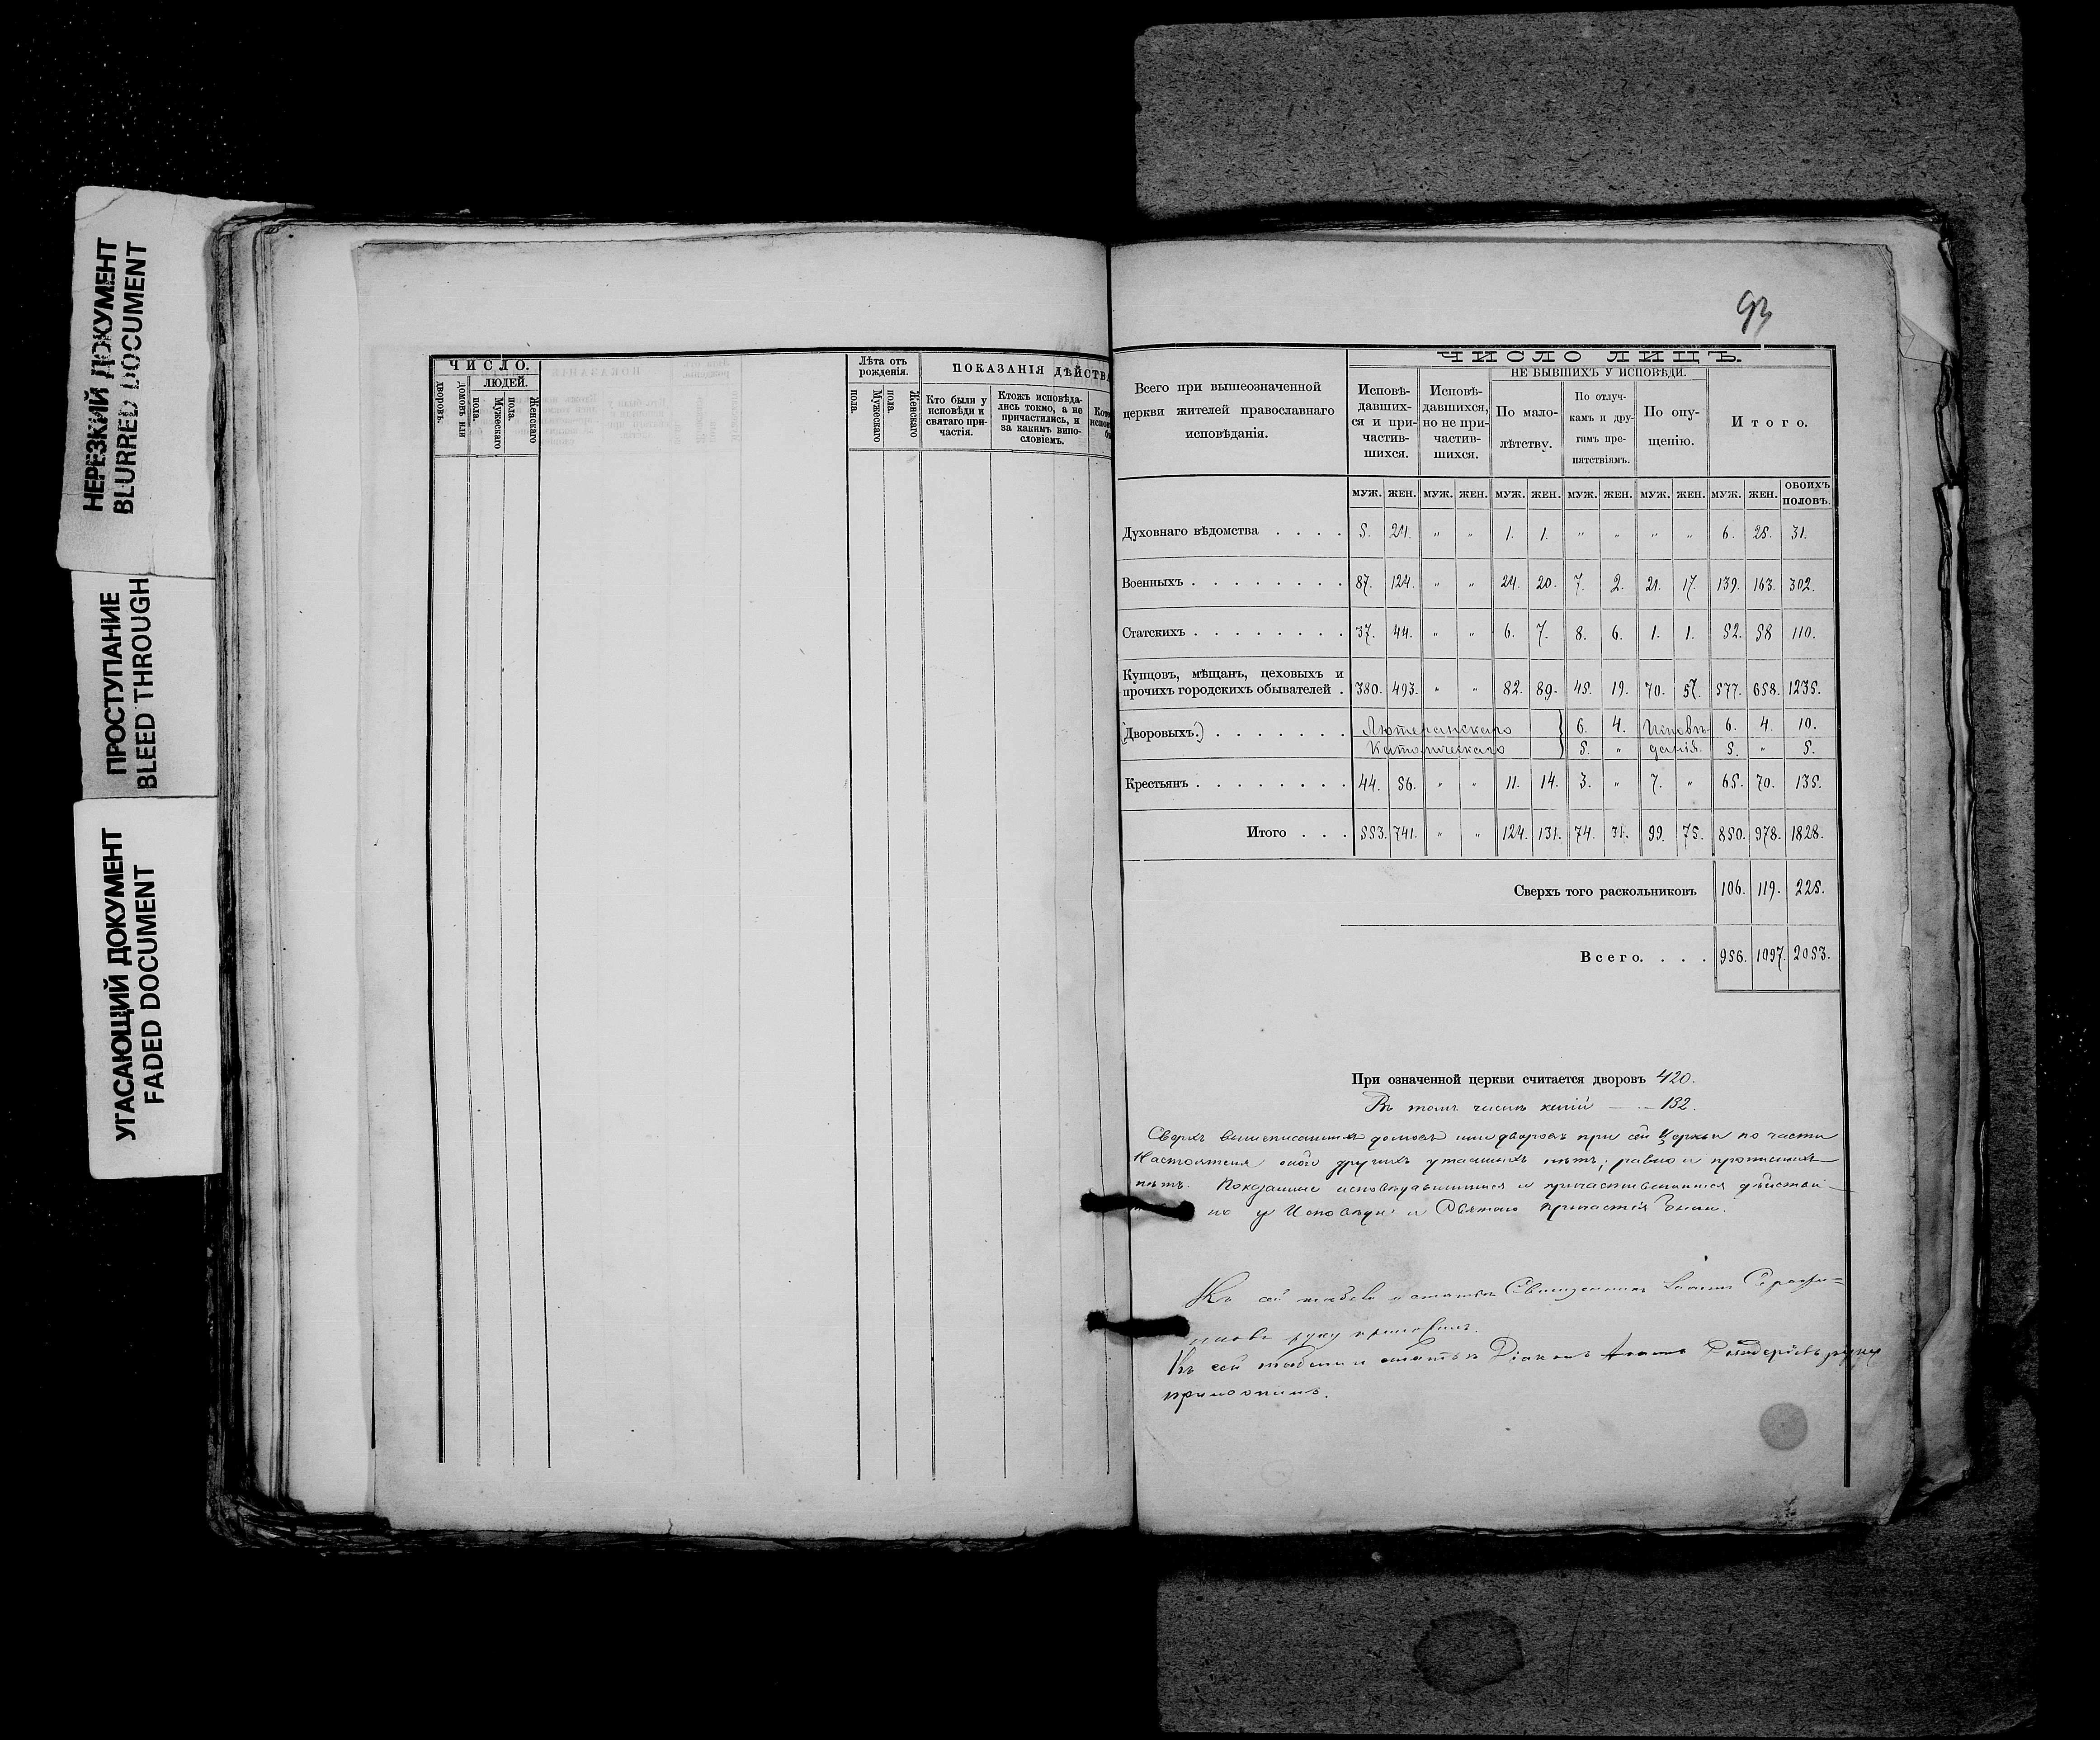 НЕРЕЗКИЙ ДОКУМЕНТ
BLURRED DOCUMENT
ПРОСТУПАНИЕ
BLEED THROUGH
УГАСАЮЩИЙ ДОКУМЕНТ
FADED DOCUMENT
ЧИСЛО.
ЛЮДЕЙ.
дворовъ.
домовъ или
Мужескаго пола.
Женскаго пола.
Лѣта отъ рожденія.
Мужескаго пола.
Женскаго пола.
ПОКАЗАНІЯ ДѢЙСТВА
Кто были у исповѣди и святаго причастія.
Ктожъ исповѣдались токмо, а не причастились, и за какимъ винословіемъ.
93
Всего при вышеозначенной церкви жителей православнаго исповѣданія.
ЧИСЛО ЛИЦЪ.
Исповѣдавшихся и причастившихся.
Исповѣдавшихся, но не причастившихся.
НЕ БЫВШИХЪ У ИСПОВѢДИ.
По малолѣтству.
По отлучкамъ и другимъ препятствіямъ.
По опущенію.
Итого.
МУЖ. ЖЕН. МУЖ. ЖЕН. МУЖ. ЖЕН. МУЖ. ЖЕН. МУЖ. ЖЕН. МУЖ. ЖЕН. ОБОИХЪ ПОЛОВЪ.
Духовнаго вѣдомства . . . . 5. 24. " " 1. 1. " " " " 6. 25. 31.
Военныхъ . . . . . . . . 87. 124. " " 24. 20. 7. 2. 21. 17. 139. 163. 302.
Статскихъ . . . . . . . . 37. 44. " " 6. 7. 8. 6. 1. 1. 52. 58 110.
Купцовъ, мѣщанъ, цеховыхъ и
прочихъ городскихъ обывателей . 380. 493. " " 82. 89. 45. 19. 70. 57. 577. 658. 1235.
(Дворовыхъ.) . . . . . . . Лютеранскаго } 6. 4. Исповѣ- 6. 4. 10.
Католическаго } 5. " данія. 5. " 5.
Крестьянъ . . . . . . . . 44. 56. " " 11. 14. 3. " 7. " 65. 70. 135.
Итого . . . 553. 741. " " 124. 131. 74. 31. 99. 75. 850. 978. 1828.
Сверхъ того раскольниковъ 106. 119. 225.
Всего. . . . 956. 1097. 2053.
При означенной церкви считается дворовъ 420.
Въ томъ числѣ келій — 132.
Сверхъ вышеписанныхъ домовъ или дворовъ при сей Церкви по части
Настоятеля оной другихъ утаенныхъ нѣтъ; равно и прописныхъ
нѣтъ. Показанные исповѣдавшимися и причастившимися дѣйстви-
но у Исповѣди и Святаго Причастія были.
Къ сей табели и статьѣ Священникъ Іоаннъ
руку приложилъ.
Къ сей табели и статьѣ Діаконъ руку
приложилъ.